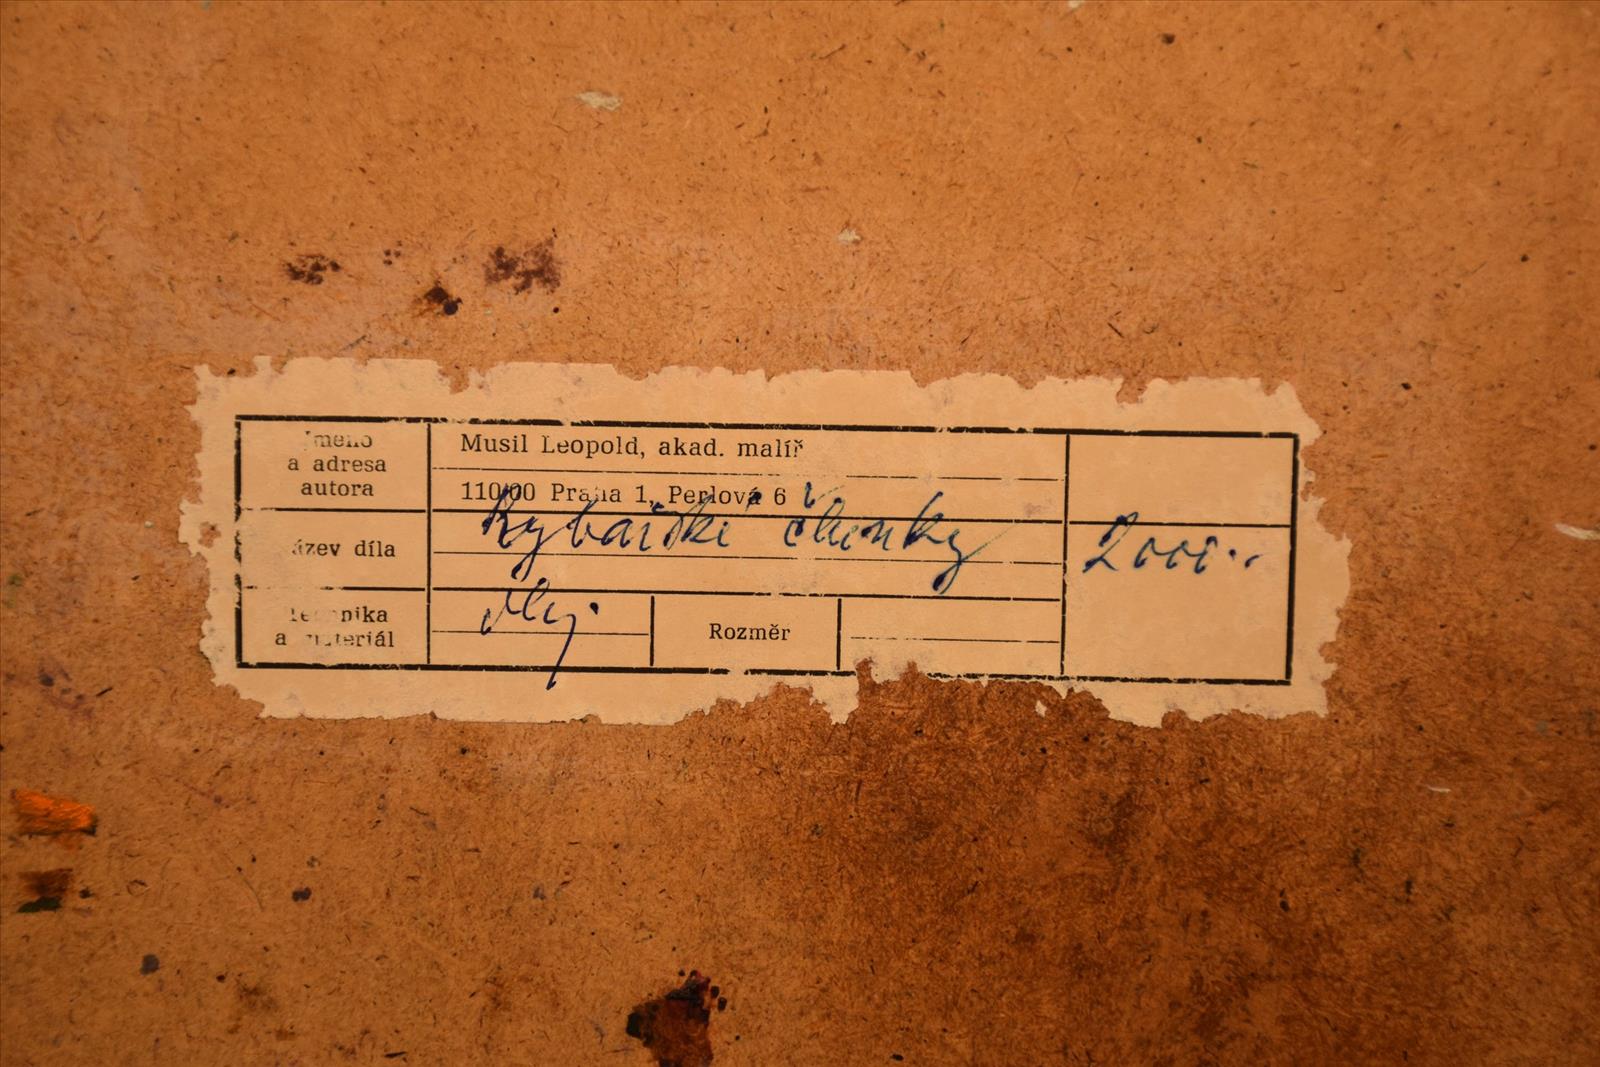 Jméno
a adresa
autora
Musil Leopold, akad. malíř
110 00 Praha 1, Perlová 6
ázev díla
Rybářské člunky
2000.-
Technika
a materiál
olej
Rozměr